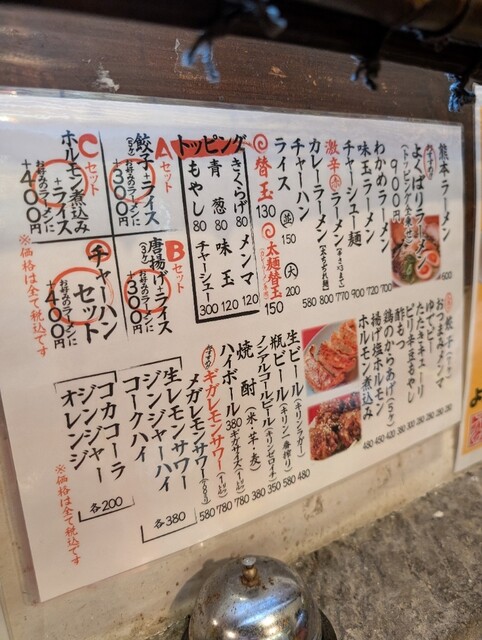 熊本ラーメン 600
なすび
よくばりラーメン
(トッピング全部のせ)
900円
わかめラーメン 700
味玉ラーメン 720
チャーシュー麺 900
激辛ラーメン 770
カレーラーメン 800
チャーハン 580
ライス 並150 大200
替玉 130
太麺替玉 150
トッピング
きくらげ 80
青葱 80
もやし 80
メンマ 120
味玉 120
チャーシュー 300
Aセット
餃子+ライス
(3ケ)
お好みのラーメンに
+300円
Bセット
唐揚げ+ライス
(3ケ)
お好みのラーメンに
+300円
Cセット
ホルモン煮込み
+ライス
お好みのラーメンに
+400円
チャーハン
セット
お好みのラーメンに
+400円
※価格は全て税込です
餃子
おつまみメンマ
ゆでピー
たたきキューリ
ピリ辛豆もやし
酢もつ
鶏のからあげ(5ケ)
揚げ塩ホルモン
ホルモン煮込み
生ビール(キリンラガー)
瓶ビール(キリン一番搾り)
ノンアルコールビール(キリンゼロイチ)
焼酎(米・芋・麦)
ハイボール 380
ギガレモンサワー
メガレモンサワー
生レモンサワー
ジンジャーハイ
コークハイ
各380
コカコーラ
ジンジャー
オレンジ
各200
※価格は全て税込です